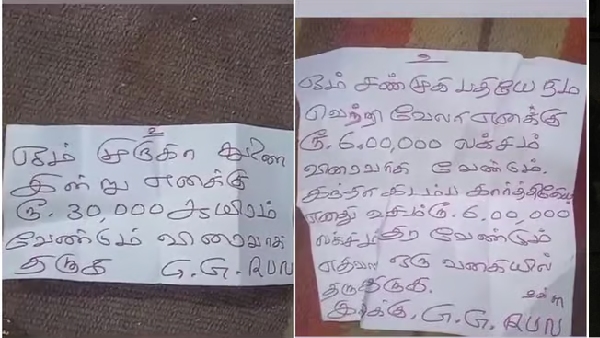 உ
ஓம் முருகா துணை
இன்று எனக்கு
ரூ. 30,000 ஆயிரம்
வேண்டும் விரைவாக
தருக G.G. RUN
உ
ஓம் சண்முக பதியே நம
வெற்றி வேலா எனக்கு
ரூ. 6,00,000 லக்சம்
விரைவாக வேண்டும்.
கார்த்திகேய
எனது வசம் ரூ. 6,00,000
லக்சம் தர வேண்டும்
எதாவ ஒரு வகையில்
தருகிருகு.
இருக்கு. G.G. RUN